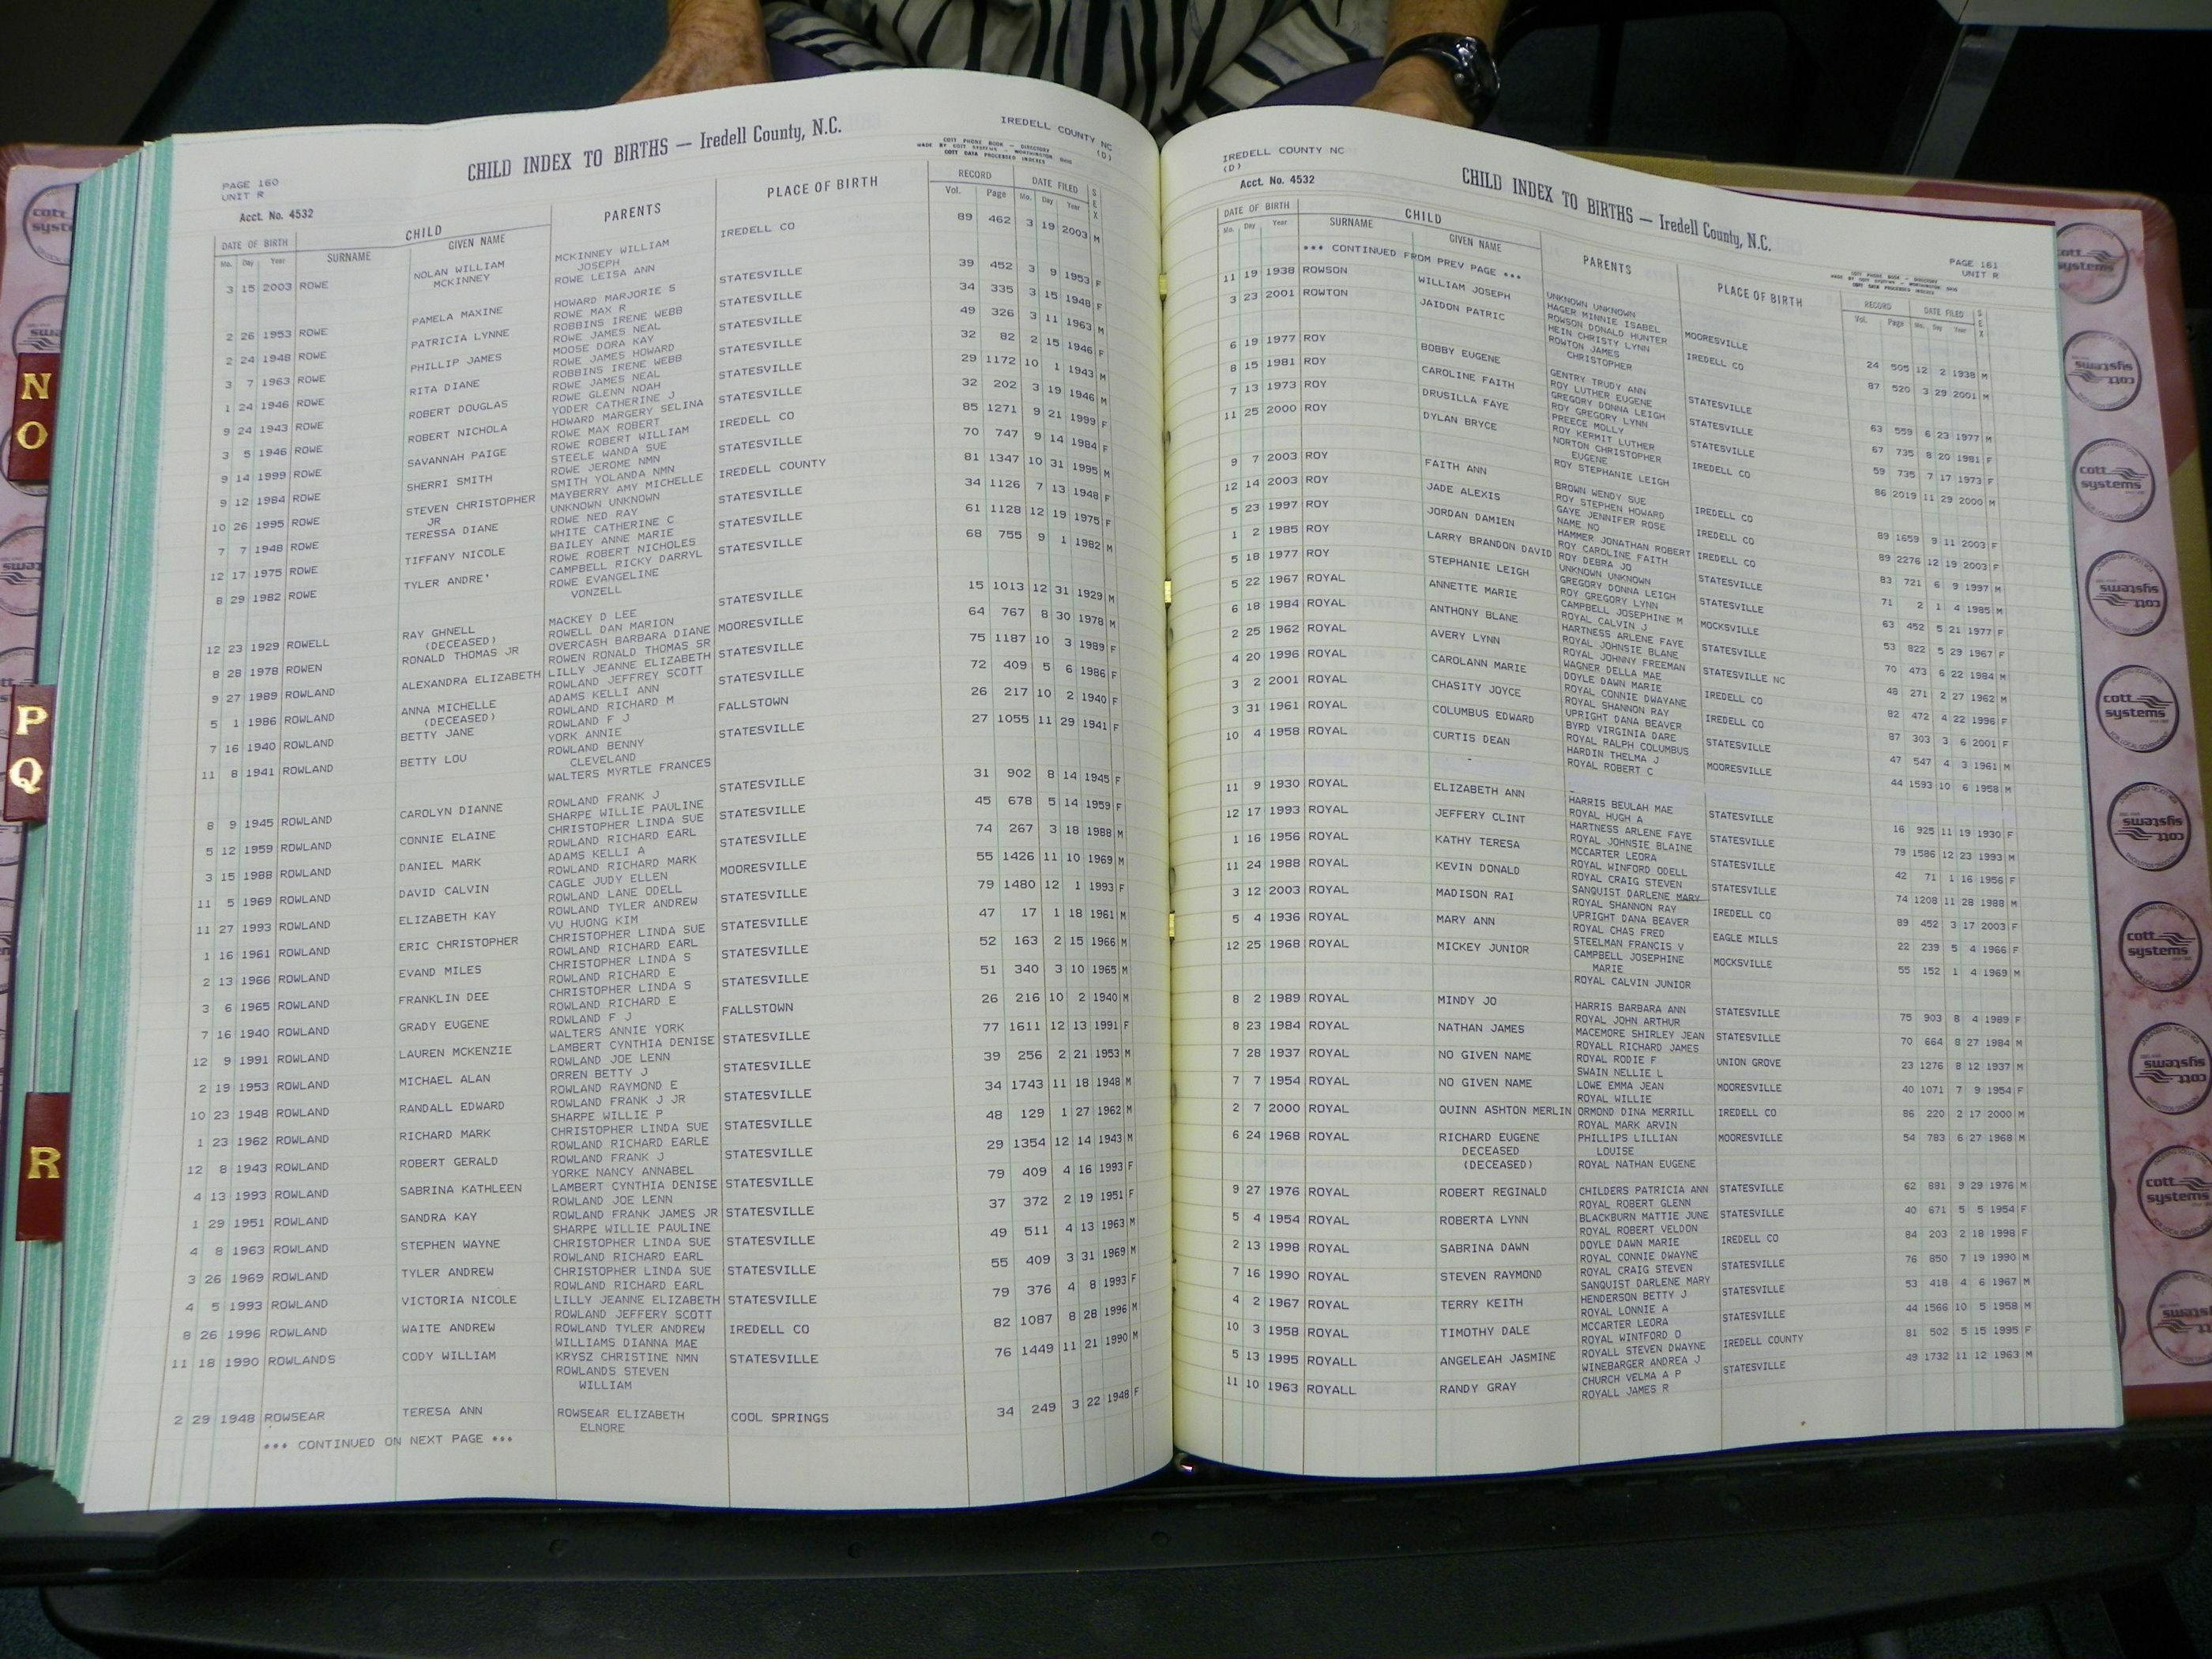 CHILD INDEX TO BIRTHS — Iredell County, N.C.
IREDELL COUNTY NC
(D)
COTT PHONE BOOK - DIRECTORY
MADE BY COTT SYSTEMS - WORTHINGTON OHIO
COTT DATA PROCESSED INDEXES
PAGE 160
UNIT R
Acct. No. 4532
DATE OF BIRTH CHILD PARENTS PLACE OF BIRTH RECORD DATE FILED SEX
Mo. Day Year SURNAME GIVEN NAME Vol. Page Mo. Day Year
3 15 2003 ROWE NOLAN WILLIAM MCKINNEY WILLIAM IREDELL CO 89 462 3 19 2003 M
MCKINNEY JOSEPH
ROWE LEISA ANN
2 26 1953 ROWE PAMELA MAXINE HOWARD MARJORIE S STATESVILLE 39 452 3 9 1953 F
ROWE MAX R
2 24 1948 ROWE PATRICIA LYNNE ROBBINS IRENE WEBB STATESVILLE 34 335 3 15 1948 F
ROWE JAMES NEAL
3 7 1963 ROWE PHILLIP JAMES MOOSE DORA KAY STATESVILLE 49 326 3 11 1963 M
ROWE JAMES HOWARD
1 24 1946 ROWE RITA DIANE ROBBINS IRENE WEBB STATESVILLE 32 82 2 15 1946 F
ROWE JAMES NEAL
9 24 1943 ROWE ROBERT DOUGLAS ROWE GLENN NOAH STATESVILLE 29 1172 10 1 1943 M
YODER CATHERINE J
3 5 1946 ROWE ROBERT NICHOLA HOWARD MARGERY SELINA STATESVILLE 32 202 3 19 1946 M
ROWE MAX ROBERT
9 14 1999 ROWE SAVANNAH PAIGE ROWE ROBERT WILLIAM IREDELL CO 85 1271 9 21 1999 F
STEELE WANDA SUE
9 12 1984 ROWE SHERRI SMITH ROWE JEROME NMN STATESVILLE 70 747 9 14 1984 F
SMITH YOLANDA NMN
10 26 1995 ROWE STEVEN CHRISTOPHER MAYBERRY AMY MICHELLE IREDELL COUNTY 81 1347 10 31 1995 M
JR UNKNOWN UNKNOWN
7 7 1948 ROWE TERESSA DIANE ROWE NED RAY STATESVILLE 34 1126 7 13 1948 F
WHITE CATHERINE C
12 17 1975 ROWE TIFFANY NICOLE BAILEY ANNE MARIE STATESVILLE 61 1128 12 19 1975 F
ROWE ROBERT NICHOLES
8 29 1982 ROWE TYLER ANDRE' CAMPBELL RICKY DARRYL STATESVILLE 68 755 9 1 1982 M
ROWE EVANGELINE
VONZELL
12 23 1929 ROWELL RAY GHNELL MACKEY D LEE STATESVILLE 15 1013 12 31 1929 M
(DECEASED) ROWELL DAN MARION
8 28 1978 ROWEN RONALD THOMAS JR OVERCASH BARBARA DIANE MOORESVILLE 64 767 8 30 1978 M
ROWEN RONALD THOMAS SR
9 27 1989 ROWLAND ALEXANDRA ELIZABETH LILLY JEANNE ELIZABETH STATESVILLE 75 1187 10 3 1989 F
ROWLAND JEFFREY SCOTT
5 1 1986 ROWLAND ANNA MICHELLE ADAMS KELLI ANN STATESVILLE 72 409 5 6 1986 F
(DECEASED) ROWLAND RICHARD M
7 16 1940 ROWLAND BETTY JANE ROWLAND F J FALLSTOWN 26 217 10 2 1940 F
YORK ANNIE
11 8 1941 ROWLAND BETTY LOU ROWLAND BENNY STATESVILLE 27 1055 11 29 1941 F
CLEVELAND
WALTERS MYRTLE FRANCES
8 9 1945 ROWLAND CAROLYN DIANNE ROWLAND FRANK J STATESVILLE 31 902 8 14 1945 F
SHARPE WILLIE PAULINE
5 12 1959 ROWLAND CONNIE ELAINE CHRISTOPHER LINDA SUE STATESVILLE 45 678 5 14 1959 F
ROWLAND RICHARD EARL
3 15 1988 ROWLAND DANIEL MARK ADAMS KELLI A STATESVILLE 74 267 3 18 1988 M
ROWLAND RICHARD MARK
11 5 1969 ROWLAND DAVID CALVIN CAGLE JUDY ELLEN MOORESVILLE 55 1426 11 10 1969 M
ROWLAND LANE ODELL
11 27 1993 ROWLAND ELIZABETH KAY ROWLAND TYLER ANDREW STATESVILLE 79 1480 12 1 1993 F
VU HUONG KIM
1 16 1961 ROWLAND ERIC CHRISTOPHER CHRISTOPHER LINDA SUE STATESVILLE 47 17 1 18 1961 M
ROWLAND RICHARD EARL
2 13 1966 ROWLAND EVAND MILES CHRISTOPHER LINDA S STATESVILLE 52 163 2 15 1966 M
ROWLAND RICHARD E
3 6 1965 ROWLAND FRANKLIN DEE CHRISTOPHER LINDA S STATESVILLE 51 340 3 10 1965 M
ROWLAND RICHARD E
7 16 1940 ROWLAND GRADY EUGENE ROWLAND F J FALLSTOWN 26 216 10 2 1940 M
WALTERS ANNIE YORK
12 9 1991 ROWLAND LAUREN MCKENZIE LAMBERT CYNTHIA DENISE STATESVILLE 77 1611 12 13 1991 F
ROWLAND JOE LENN
2 19 1953 ROWLAND MICHAEL ALAN ORREN BETTY J STATESVILLE 39 256 2 21 1953 M
ROWLAND RAYMOND E
10 23 1948 ROWLAND RANDALL EDWARD ROWLAND FRANK J JR STATESVILLE 34 1743 11 18 1948 M
SHARPE WILLIE P
1 23 1962 ROWLAND RICHARD MARK CHRISTOPHER LINDA SUE STATESVILLE 48 129 1 27 1962 M
ROWLAND RICHARD EARLE
12 8 1943 ROWLAND ROBERT GERALD ROWLAND FRANK J STATESVILLE 29 1354 12 14 1943 M
YORKE NANCY ANNABEL
4 13 1993 ROWLAND SABRINA KATHLEEN LAMBERT CYNTHIA DENISE STATESVILLE 79 409 4 16 1993 F
ROWLAND JOE LENN
1 29 1951 ROWLAND SANDRA KAY ROWLAND FRANK JAMES JR STATESVILLE 37 372 2 19 1951 F
SHARPE WILLIE PAULINE
4 8 1963 ROWLAND STEPHEN WAYNE CHRISTOPHER LINDA SUE STATESVILLE 49 511 4 13 1963 M
ROWLAND RICHARD EARL
3 26 1969 ROWLAND TYLER ANDREW CHRISTOPHER LINDA SUE STATESVILLE 55 409 3 31 1969 M
ROWLAND RICHARD EARL
4 5 1993 ROWLAND VICTORIA NICOLE LILLY JEANNE ELIZABETH STATESVILLE 79 376 4 8 1993 F
ROWLAND JEFFERY SCOTT
8 26 1996 ROWLAND WAITE ANDREW ROWLAND TYLER ANDREW IREDELL CO 82 1087 8 28 1996 M
WILLIAMS DIANNA MAE
11 18 1990 ROWLANDS CODY WILLIAM KRYSZ CHRISTINE NMN STATESVILLE 76 1449 11 21 1990 M
ROWLANDS STEVEN
WILLIAM
2 29 1948 ROWSEAR TERESA ANN ROWSEAR ELIZABETH COOL SPRINGS 34 249 3 22 1948 F
ELNORE
*** CONTINUED ON NEXT PAGE ***
IREDELL COUNTY NC
(D)
Acct. No. 4532
CHILD INDEX TO BIRTHS — Iredell County, N.C.
PAGE 161
UNIT R
COTT PHONE BOOK - DIRECTORY
MADE BY COTT SYSTEMS - WORTHINGTON OHIO
COTT DATA PROCESSED INDEXES
DATE OF BIRTH CHILD PARENTS PLACE OF BIRTH RECORD DATE FILED SEX
Mo. Day Year SURNAME GIVEN NAME Vol. Page Mo. Day Year
*** CONTINUED FROM PREV PAGE ***
11 19 1938 ROWSON WILLIAM JOSEPH UNKNOWN UNKNOWN MOORESVILLE 24 505 12 2 1938 M
HAGER MINNIE ISABEL
ROWSON DONALD HUNTER
3 23 2001 ROWTON JAIDON PATRIC HEIN CHRISTY LYNN IREDELL CO 87 520 3 29 2001 M
ROWTON JAMES
CHRISTOPHER
6 19 1977 ROY BOBBY EUGENE GENTRY TRUDY ANN STATESVILLE 63 559 6 23 1977 M
ROY LUTHER EUGENE
8 15 1981 ROY CAROLINE FAITH GREGORY DONNA LEIGH STATESVILLE 67 735 8 20 1981 F
ROY GREGORY LYNN
7 13 1973 ROY DRUSILLA FAYE PREECE MOLLY STATESVILLE 59 735 7 17 1973 F
ROY KERMIT LUTHER
11 25 2000 ROY DYLAN BRYCE NORTON CHRISTOPHER IREDELL CO 86 2019 11 29 2000 M
EUGENE
ROY STEPHANIE LEIGH
9 7 2003 ROY FAITH ANN BROWN WENDY SUE IREDELL CO 89 1659 9 11 2003 F
ROY STEPHEN HOWARD
12 14 2003 ROY JADE ALEXIS GAYE JENNIFER ROSE IREDELL CO 89 2276 12 19 2003 F
NAME NO
5 23 1997 ROY JORDAN DAMIEN HAMMER JONATHAN ROBERT STATESVILLE 83 721 6 9 1997 M
ROY CAROLINE FAITH
1 2 1985 ROY LARRY BRANDON DAVID ROY DEBRA JO STATESVILLE 71 2 1 4 1985 M
UNKNOWN UNKNOWN
5 18 1977 ROY STEPHANIE LEIGH GREGORY DONNA LEIGH MOCKSVILLE 63 452 5 21 1977 F
ROY GREGORY LYNN
5 22 1967 ROYAL ANNETTE MARIE CAMPBELL JOSEPHINE M STATESVILLE 53 822 5 29 1967 F
ROYAL CALVIN J
6 18 1984 ROYAL ANTHONY BLANE HARTNESS ARLENE FAYE STATESVILLE NC 70 473 6 22 1984 M
ROYAL JOHNSIE BLANE
2 25 1962 ROYAL AVERY LYNN ROYAL JOHNNY FREEMAN IREDELL CO 48 271 2 27 1962 M
WAGNER DELLA MAE
4 20 1996 ROYAL CAROLANN MARIE DOYLE DAWN MARIE IREDELL CO 82 472 4 22 1996 F
ROYAL CONNIE DWAYANE
3 2 2001 ROYAL CHASITY JOYCE ROYAL SHANNON RAY STATESVILLE 87 303 3 6 2001 F
UPRIGHT DANA BEAVER
3 31 1961 ROYAL COLUMBUS EDWARD BYRD VIRGINIA DARE MOORESVILLE 47 547 4 3 1961 M
ROYAL RALPH COLUMBUS
10 4 1958 ROYAL CURTIS DEAN HARDIN THELMA J 44 1593 10 6 1958 M
ROYAL ROBERT C
11 9 1930 ROYAL ELIZABETH ANN HARRIS BEULAH MAE STATESVILLE 16 925 11 19 1930 F
ROYAL HUGH A
12 17 1993 ROYAL JEFFERY CLINT HARTNESS ARLENE FAYE STATESVILLE 79 1586 12 23 1993 M
ROYAL JOHNSIE BLAINE
1 16 1956 ROYAL KATHY TERESA MCCARTER LEORA STATESVILLE 42 71 1 16 1956 F
ROYAL WINFORD ODELL
11 24 1988 ROYAL KEVIN DONALD ROYAL CRAIG STEVEN IREDELL CO 74 1208 11 28 1988 M
SANQUIST DARLENE MARY
3 12 2003 ROYAL MADISON RAI ROYAL SHANNON RAY 89 452 3 17 2003 F
UPRIGHT DANA BEAVER
5 4 1936 ROYAL MARY ANN ROYAL CHAS FRED EAGLE MILLS 22 239 5 4 1966 F
STEELMAN FRANCIS V
12 25 1968 ROYAL MICKEY JUNIOR CAMPBELL JOSEPHINE MOCKSVILLE 55 152 1 4 1969 M
MARIE
ROYAL CALVIN JUNIOR
8 2 1989 ROYAL MINDY JO HARRIS BARBARA ANN STATESVILLE 75 903 8 4 1989 F
ROYAL JOHN ARTHUR
8 23 1984 ROYAL NATHAN JAMES MACEMORE SHIRLEY JEAN STATESVILLE 70 664 8 27 1984 M
ROYALL RICHARD JAMES
7 28 1937 ROYAL NO GIVEN NAME ROYAL RODIE F UNION GROVE 23 1276 8 12 1937 M
SWAIN NELLIE L
7 7 1954 ROYAL NO GIVEN NAME LOWE EMMA JEAN MOORESVILLE 40 1071 7 9 1954 F
ROYAL WILLIE
2 7 2000 ROYAL QUINN ASHTON MERLIN ORMOND DINA MERRILL IREDELL CO 86 220 2 17 2000 M
ROYAL MARK ARVIN
6 24 1968 ROYAL RICHARD EUGENE PHILLIPS LILLIAN MOORESVILLE 54 783 6 27 1968 M
DECEASED LOUISE
(DECEASED) ROYAL NATHAN EUGENE
9 27 1976 ROYAL ROBERT REGINALD CHILDERS PATRICIA ANN STATESVILLE 62 881 9 29 1976 M
ROYAL ROBERT GLENN
5 4 1954 ROYAL ROBERTA LYNN BLACKBURN MATTIE JUNE STATESVILLE 40 671 5 5 1954 F
ROYAL ROBERT VELDON
2 13 1998 ROYAL SABRINA DAWN DOYLE DAWN MARIE IREDELL CO 84 203 2 18 1998 F
ROYAL CONNIE DWAYNE
7 16 1990 ROYAL STEVEN RAYMOND ROYAL CRAIG STEVEN STATESVILLE 76 850 7 19 1990 M
SANQUIST DARLENE MARY
4 2 1967 ROYAL TERRY KEITH HENDERSON BETTY J STATESVILLE 53 418 4 6 1967 M
ROYAL LONNIE A
10 3 1958 ROYAL TIMOTHY DALE MCCARTER LEORA STATESVILLE 44 1566 10 5 1958 M
ROYAL WINTFORD O
5 13 1995 ROYALL ANGELEAH JASMINE ROYALL STEVEN DWAYNE IREDELL COUNTY 81 502 5 15 1995 F
WINEBARGER ANDREA J
11 10 1963 ROYALL RANDY GRAY CHURCH VELMA A P STATESVILLE 49 1732 11 12 1963 M
ROYALL JAMES R
N
O
P
Q
R
cott
systems